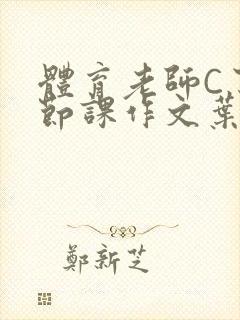 體育老師C
節課作文葉
鄭新芝